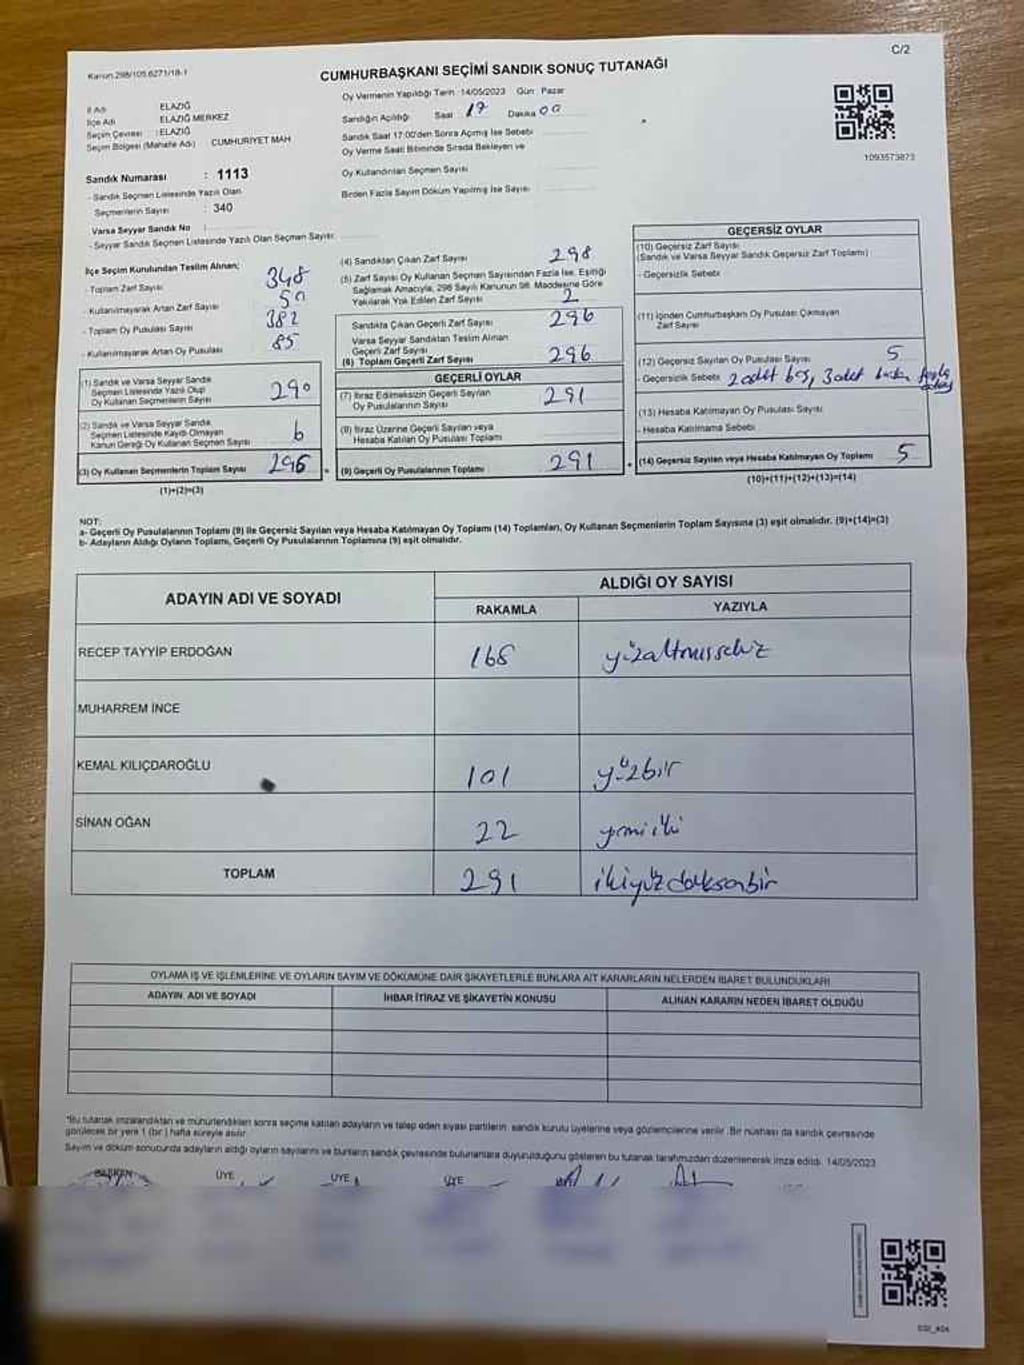 Kanun 298/105.6271/18-1
C/2
CUMHURBAŞKANI SEÇİMİ SANDIK SONUÇ TUTANAĞI
İl Adı ELAZIĞ
İlçe Adı ELAZIĞ MERKEZ
Seçim Çevresi : ELAZIĞ
Seçim Bölgesi (Mahalle Adı) CUMHURİYET MAH
Sandık Numarası : 1113
- Sandık Seçmen Listesinde Yazılı Olan
Seçmenlerin Sayısı : 340
Varsa Seyyar Sandık No :
- Seyyar Sandık Seçmen Listesinde Yazılı Olan Seçmen Sayısı:
Oy Vermenin Yapıldığı Tarih : 14/05/2023 Gün : Pazar
Sandığın Açıldığı Saat : 17 Dakika 00
Sandık Saat 17:00'den Sonra Açılmış İse Sebebi
Oy Verme Saati Bitiminde Sırada Bekleyen ve
Oy Kullandırılan Seçmen Sayısı
Birden Fazla Sayım Döküm Yapılmış İse Sayısı
1093573873
İlçe Seçim Kurulundan Teslim Alınan;
- Toplam Zarf Sayısı 348
- Kullanılmayarak Artan Zarf Sayısı 50
- Toplam Oy Pusulası Sayısı 382
- Kullanılmayarak Artan Oy Pusulası 85
(1) Sandık ve Varsa Seyyar Sandık
Seçmen Listesinde Yazılı Olup
Oy Kullanan Seçmenlerin Sayısı 290
(2) Sandık ve Varsa Seyyar Sandık
Seçmen Listesinde Kaydı Olmayan
Kanun Gereği Oy Kullanan Seçmen Sayısı 6
(3) Oy Kullanan Seçmenlerin Toplam Sayısı 296
(1)+(2)=(3)
(4) Sandıktan Çıkan Zarf Sayısı 298
(5) Zarf Sayısı Oy Kullanan Seçmen Sayısından Fazla İse, Eşitliği
Sağlamak Amacıyla, 298 Sayılı Kanunun 98. Maddesine Göre
Yakılarak Yok Edilen Zarf Sayısı 2
Sandıkta Çıkan Geçerli Zarf Sayısı 296
Varsa Seyyar Sandıktan Teslim Alınan
Geçerli Zarf Sayısı
(6) Toplam Geçerli Zarf Sayısı 296
GEÇERLİ OYLAR
(7) İtiraz Edilmeksizin Geçerli Sayılan
Oy Pusulalarının Sayısı 291
(8) İtiraz Üzerine Geçerli Sayılan veya
Hesaba Katılan Oy Pusulası Toplamı
(9) Geçerli Oy Pusulalarının Toplamı 291
GEÇERSİZ OYLAR
(10) Geçersiz Zarf Sayısı
(Sandık ve Varsa Seyyar Sandık Geçersiz Zarf Toplamı)
- Geçersizlik Sebebi
(11) İçinden Cumhurbaşkanı Oy Pusulası Çıkmayan
Zarf Sayısı
(12) Geçersiz Sayılan Oy Pusulası Sayısı 5
- Geçersizlik Sebebi 2 adet boş, 3 adet
(13) Hesaba Katılmayan Oy Pusulası Sayısı
- Hesaba Katılmama Sebebi
(14) Geçersiz Sayılan veya Hesaba Katılmayan Oy Toplamı 5
(10)+(11)+(12)+(13)=(14)
NOT:
a- Geçerli Oy Pusulalarının Toplamı (9) ile Geçersiz Sayılan veya Hesaba Katılmayan Oy Toplamı (14) Toplamları, Oy Kullanan Seçmenlerin Toplam Sayısına (3) eşit olmalıdır. (9)+(14)=(3)
b- Adayların Aldığı Oyların Toplamı, Geçerli Oy Pusulalarının Toplamına (9) eşit olmalıdır.
ADAYIN ADI VE SOYADI
ALDIĞI OY SAYISI
RAKAMLA YAZIYLA
RECEP TAYYİP ERDOĞAN 168 yüzaltmışsekiz
MUHARREM İNCE
KEMAL KILIÇDAROĞLU 101 yüzbir
SİNAN OĞAN 22 yirmiiki
TOPLAM 291 ikiyüzdoksanbir
OYLAMA İŞ VE İŞLEMLERİNE VE OYLARIN SAYIM VE DÖKÜMÜNE DAİR ŞİKAYETLERLE BUNLARA AİT KARARLARIN NELERDEN İBARET BULUNDUKLARI
ADAYIN ADI VE SOYADI İHBAR İTİRAZ VE ŞİKAYETİN KONUSU ALINAN KARARIN NEDEN İBARET OLDUĞU
*Bu tutanak imzalandıktan ve mühürlendikten sonra seçime katılan adayların ve talep eden siyasi partilerin sandık kurulu üyelerine veya gözlemcilerine verilir. Bir nüshası da sandık çevresinde
görülecek bir yere 1 (bir) hafta süreyle asılır.
Sayım ve döküm sonucunda adayların aldığı oyların sayılarını ve bunların sandık çevresinde bulunanlara duyurulduğunu gösteren bu tutanak tarafımızdan düzenlenerek imza edildi. 14/05/2023
BAŞKAN ÜYE ÜYE ÜYE